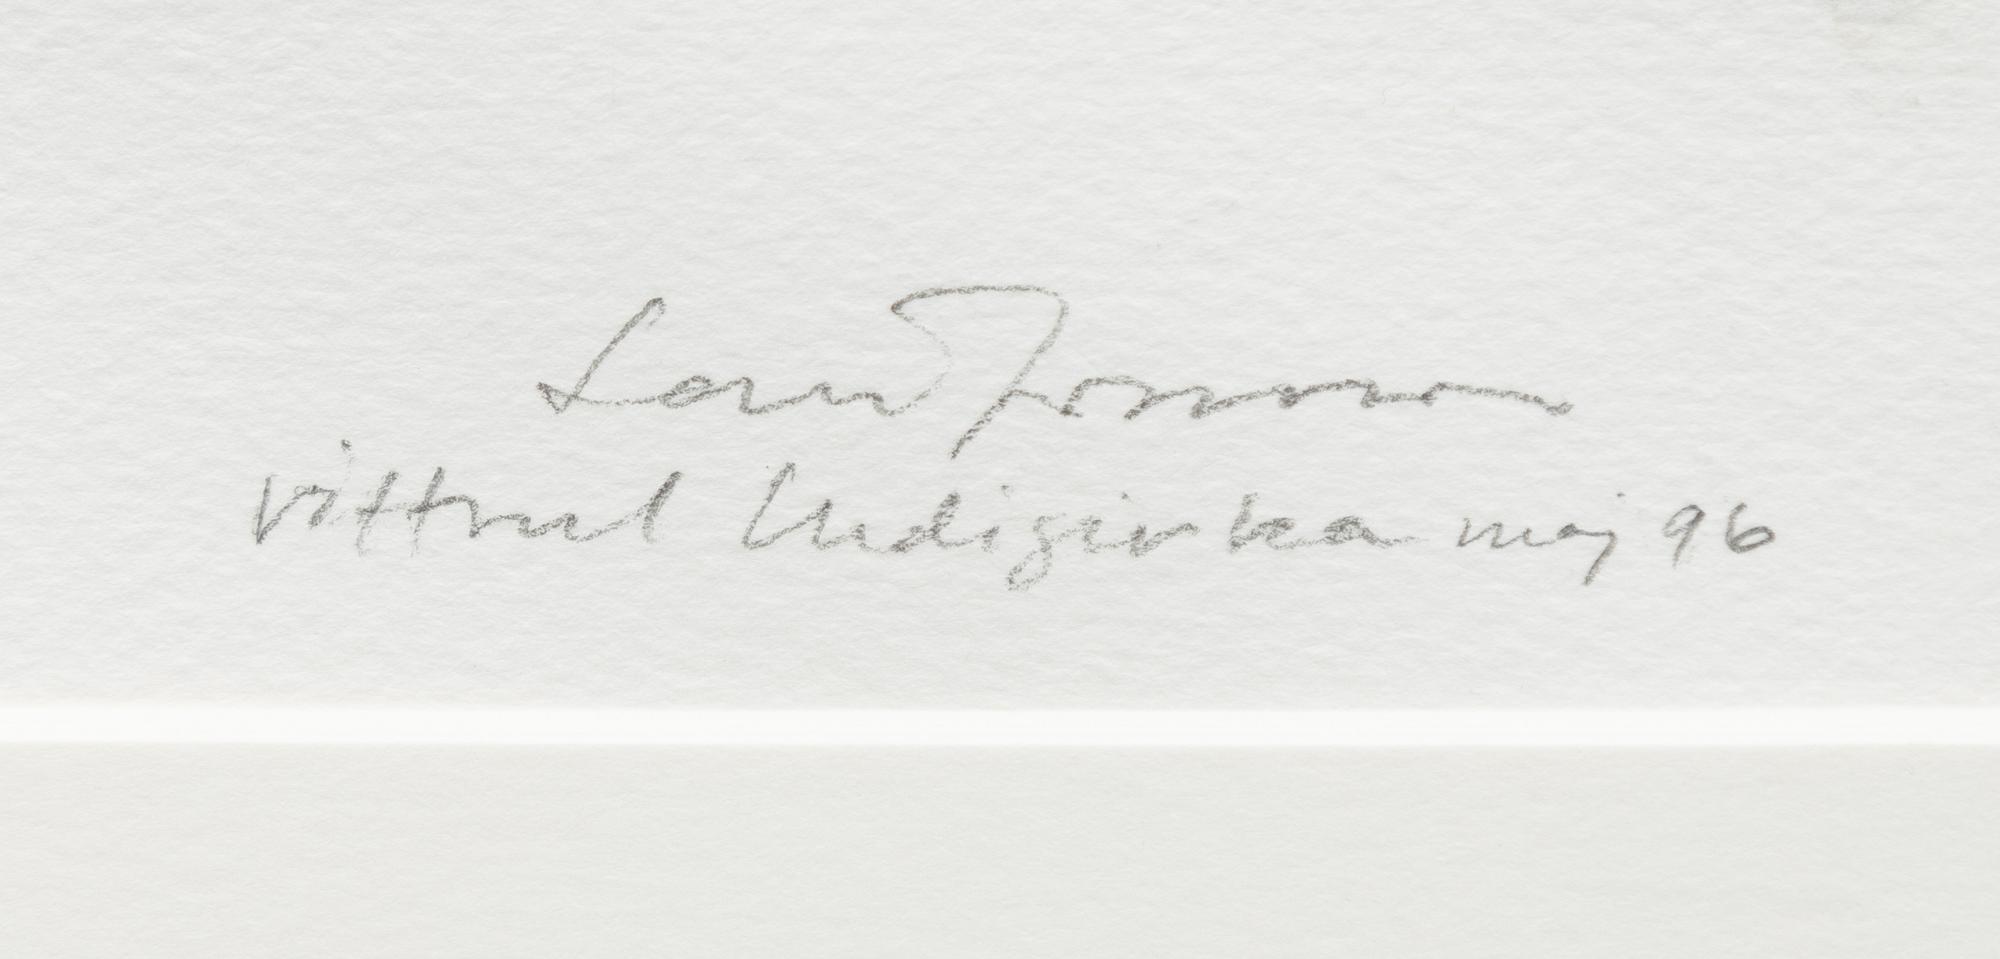 Lars Jonsson
Vittrut Indigirka maj 96